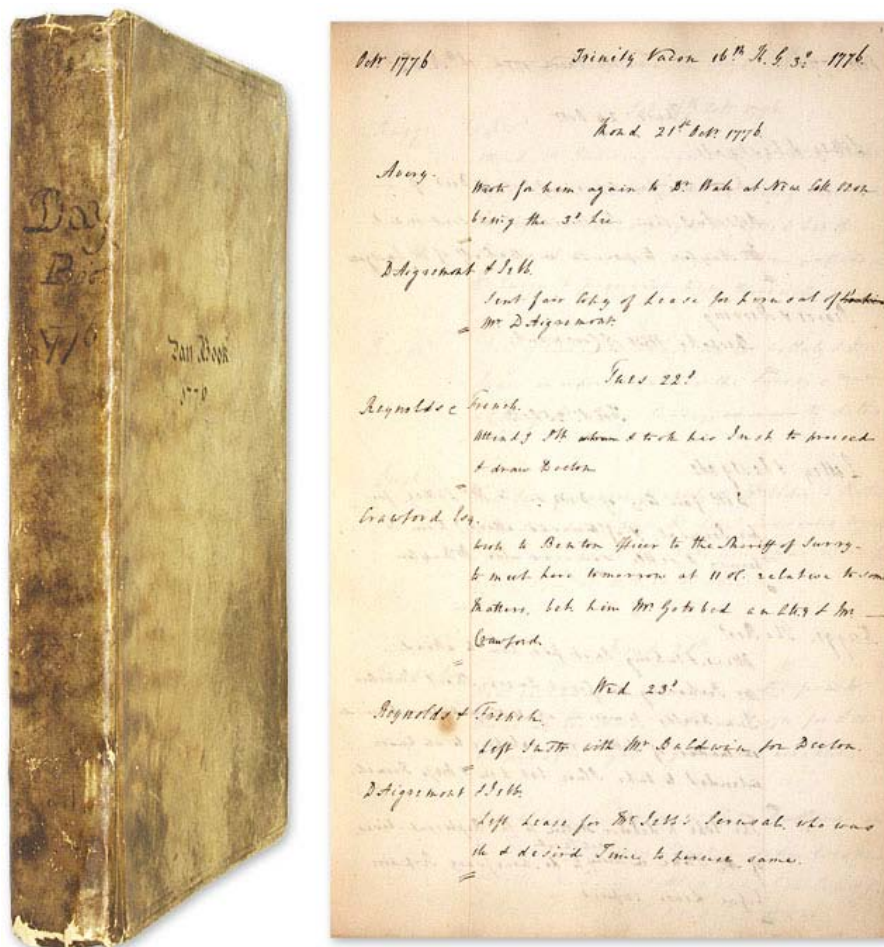 Day
Book
1776
Day Book
1776
Octr 1776 Trinity Vacon 16th K. G. 3d 1776.
Mond 21st Octr 1776
Avery.
Wrote for him again to Dr. Wall at New Coll Oxon
being the 3d Lre
D'Aigremont & Jebb.
Sent fair Copy of Lease for perusal of
Mr. D'Aigremont.
Tues 22d
Reynolds & French.
Attendg Plt & took his Instr to proceed
& draw Declon
Crawford Esq.
Wrote to Benton Officer to the Sheriff of Surry
to meet here tomorrow at 11 oC. relative to som
matters, bet him Mr Gotobed an Atty & Mr
Crawford.
Wed 23d
Reynolds & French.
Left Instr with Mr Baldwin for Declon.
D'Aigremont & Jebb.
Left Lease for Mr Jebb's Perusal, who was
& desird Time to peruse same.